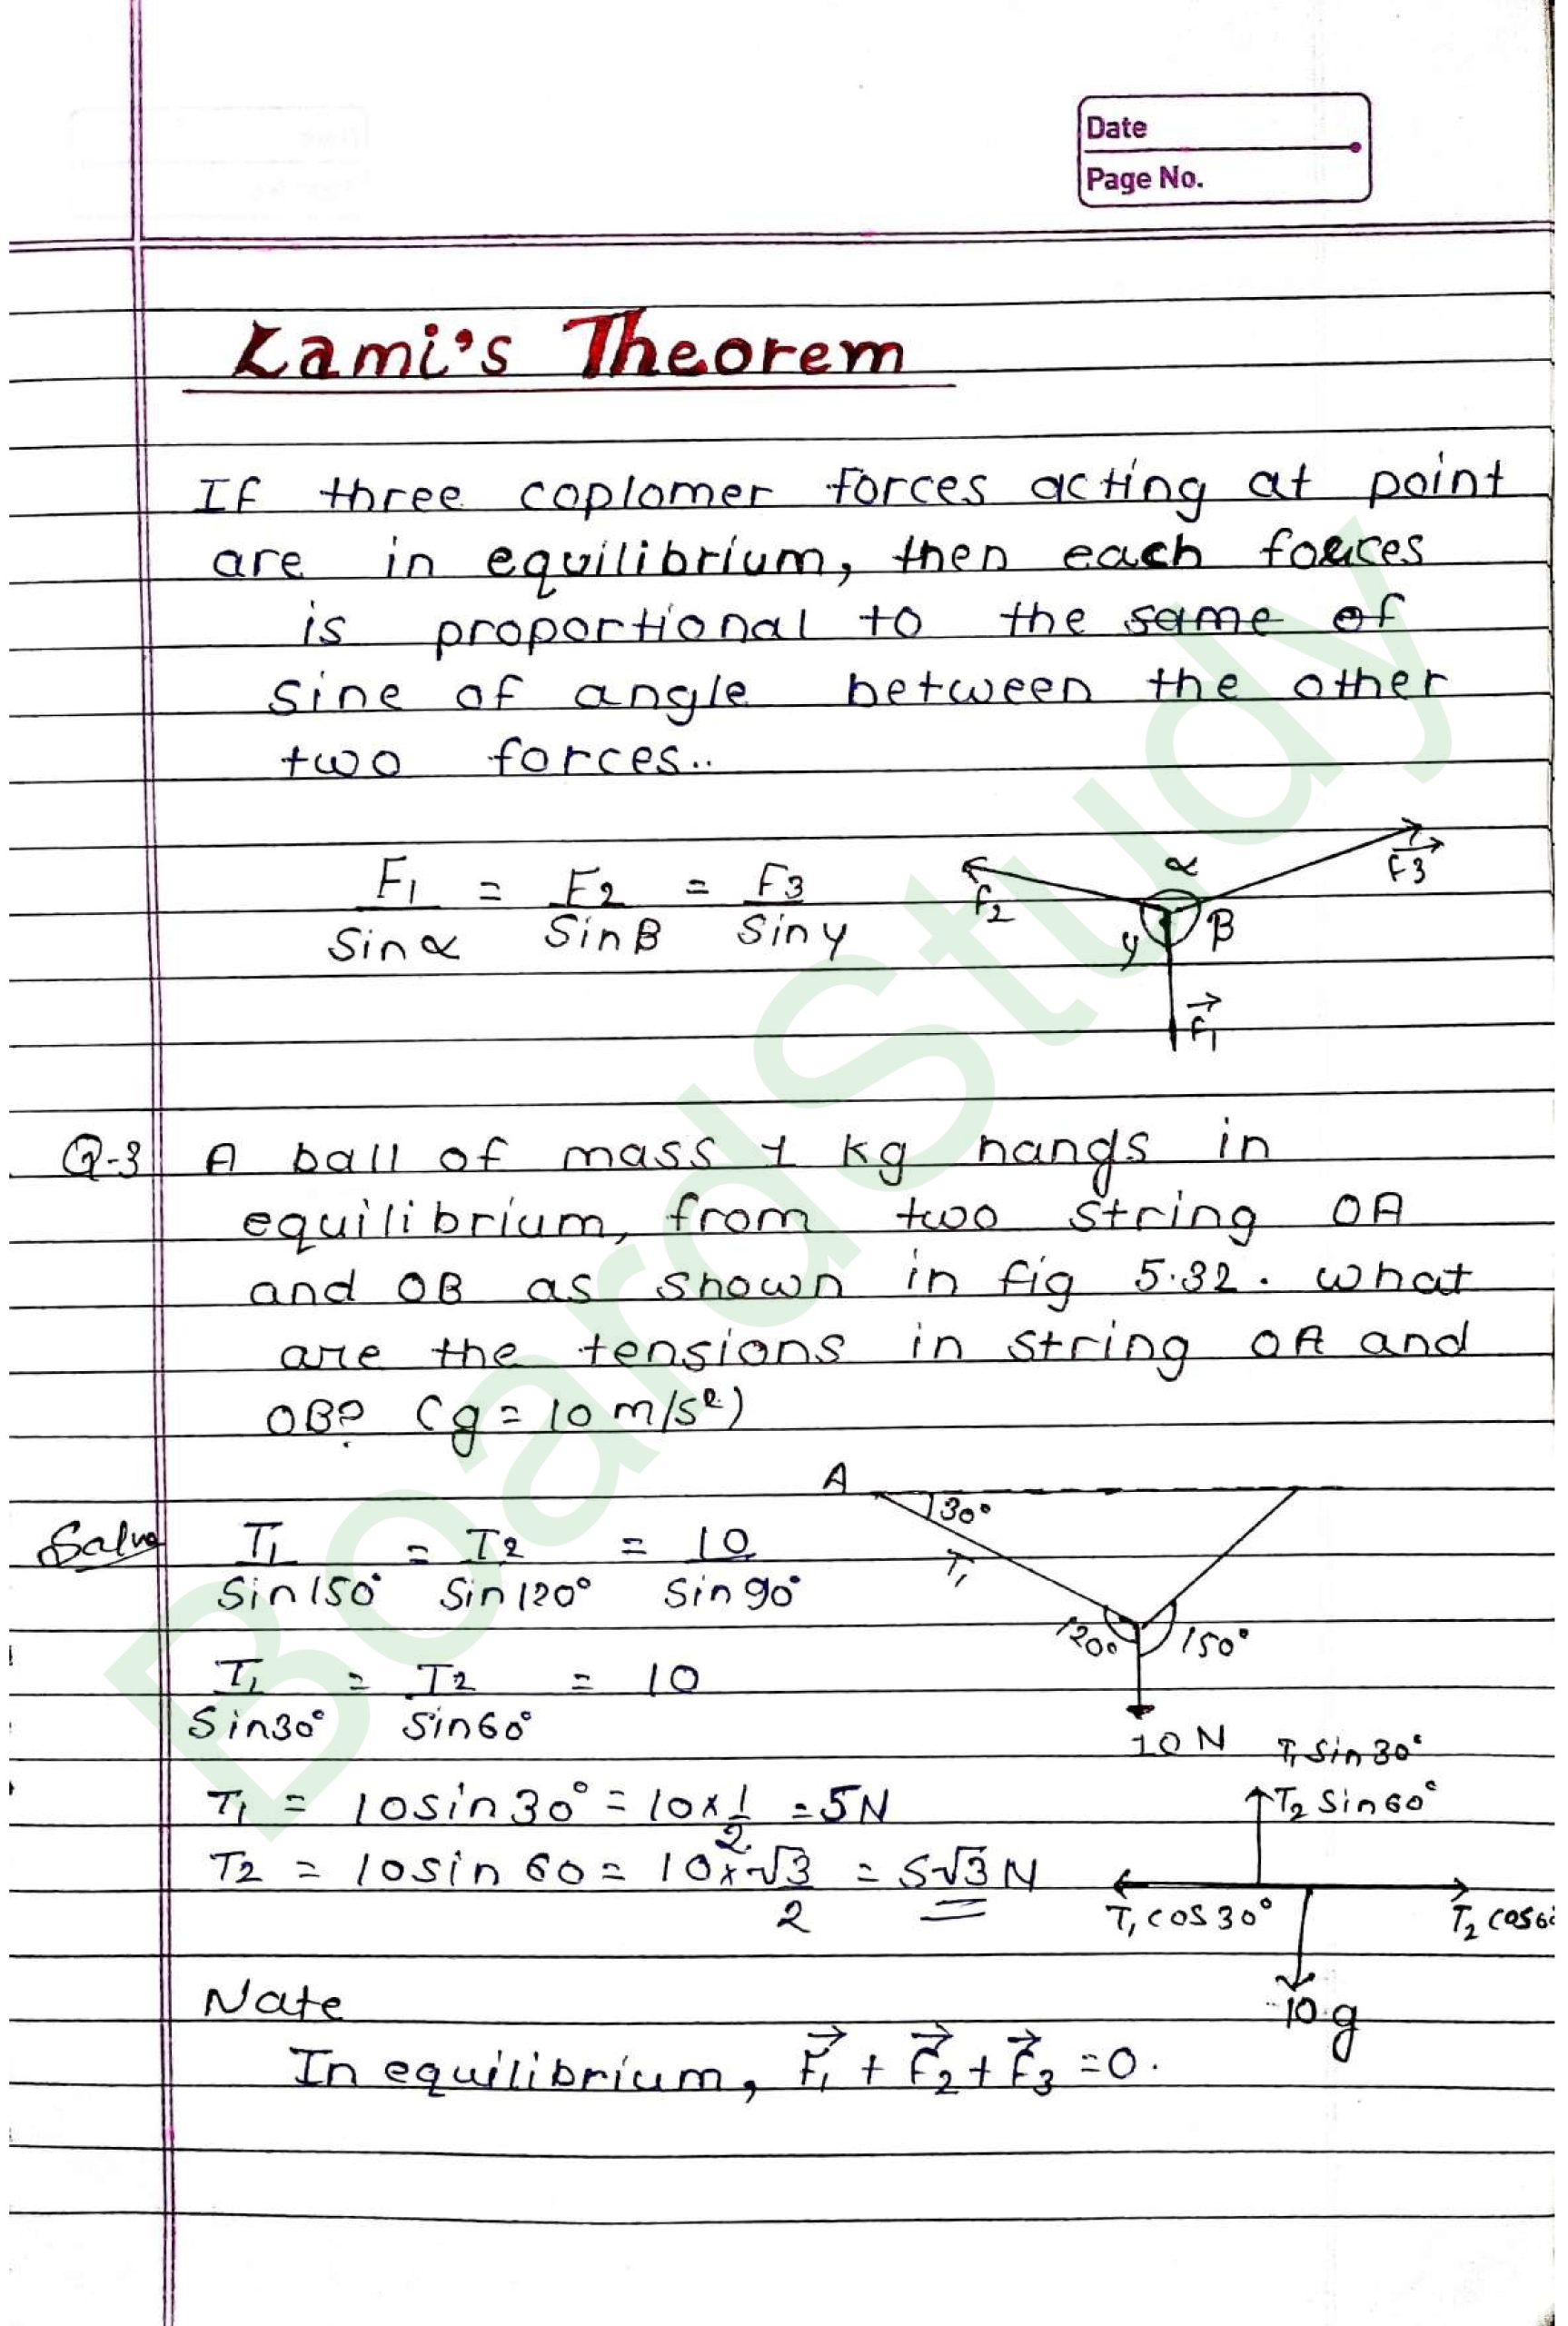 Date
Page No.
Lami's Theorem
If three coplomer forces acting at point
are in equilibrium, then each forces
is proportional to the same of
sine of angle between the other
two forces..
F1/Sinα = F2/SinB = F3/Siny
F2 α F3
y B
F1
Q-3 A ball of mass 1 kg hangs in
equilibrium, from two string OA
and OB as shown in fig 5.32. what
are the tensions in string OA and
OB? (g = 10 m/s²)
A
30°
T1
120° 150°
10 N
Solve T1/Sin150° = T2/Sin120° = 10/Sin90°
T1/Sin30° = T2/Sin60° = 10
T1 = 10sin30° = 10×1/2 = 5N
T2 = 10sin 60 = 10×√3/2 = 5√3 N
T1 Sin30°
T2 Sin60°
T1 cos30° T2 cos6
10g
Nate
In equilibrium, F1 + F2 + F3 = 0.
BoardStudy